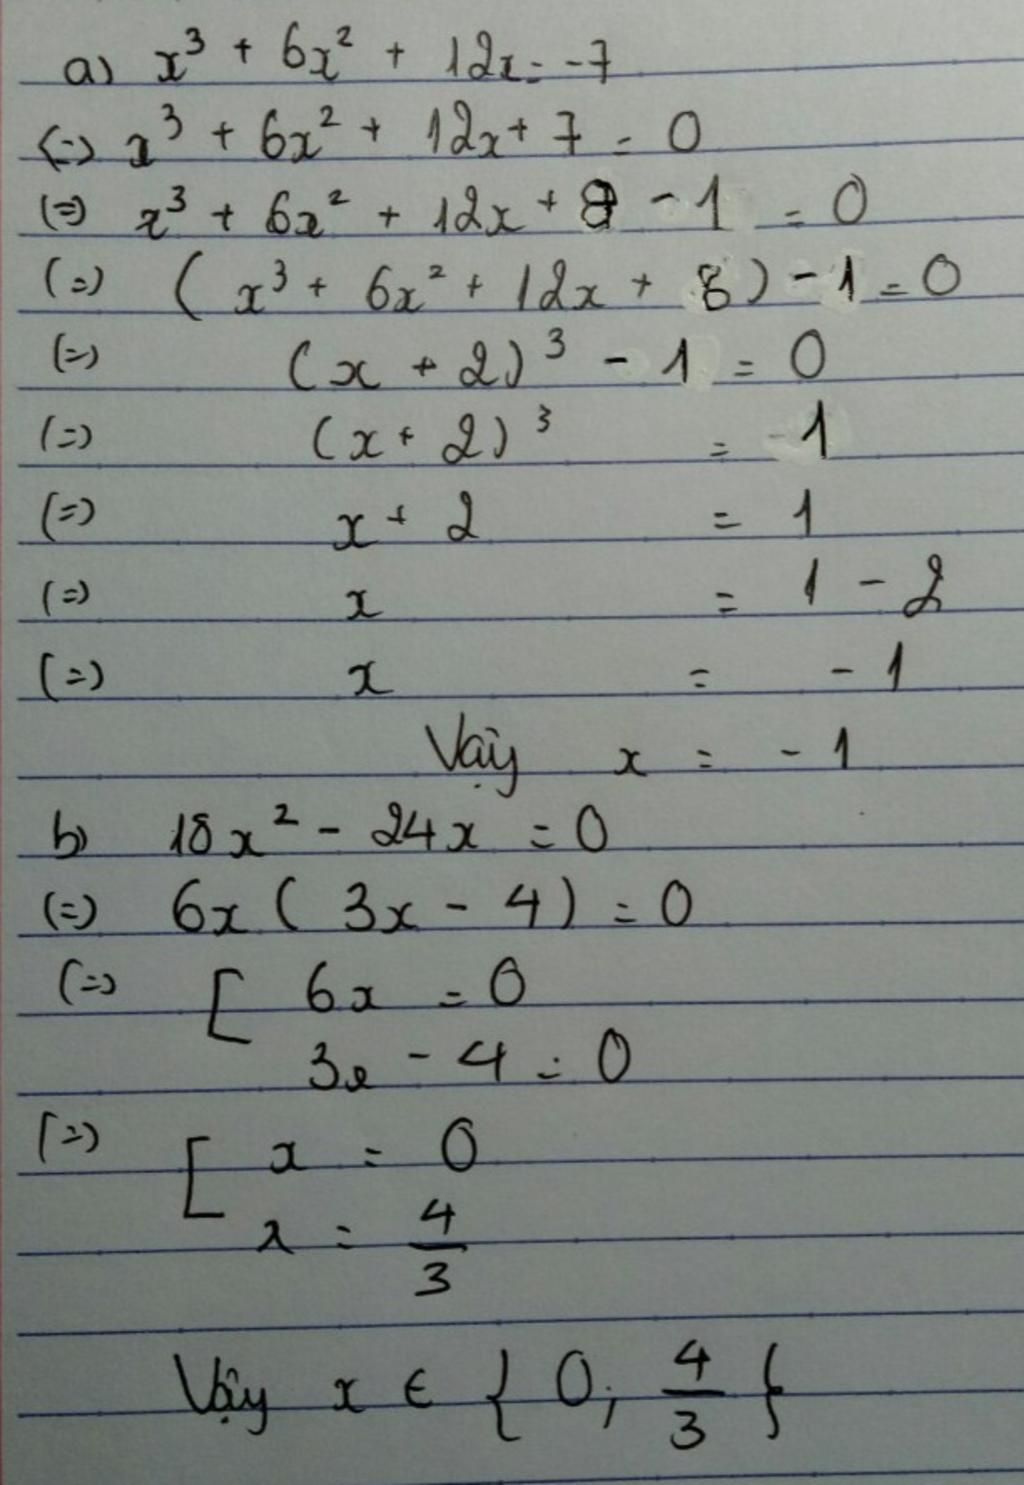 a) x³ + 6x² + 12x = -7
(=) x³ + 6x² + 12x + 7 = 0
(=) x³ + 6x² + 12x + 8 - 1 = 0
(=) (x³ + 6x² + 12x + 8) - 1 = 0
(=) (x + 2)³ - 1 = 0
(=) (x + 2)³ = 1
(=) x + 2 = 1
(=) x = 1 - 2
(=) x = -1
Vậy x = -1
b) 18x² - 24x = 0
(=) 6x(3x - 4) = 0
(=) [ 6x = 0
3x - 4 = 0
(=) [ x = 0
x = 4/3
Vậy x ∈ {0; 4/3}